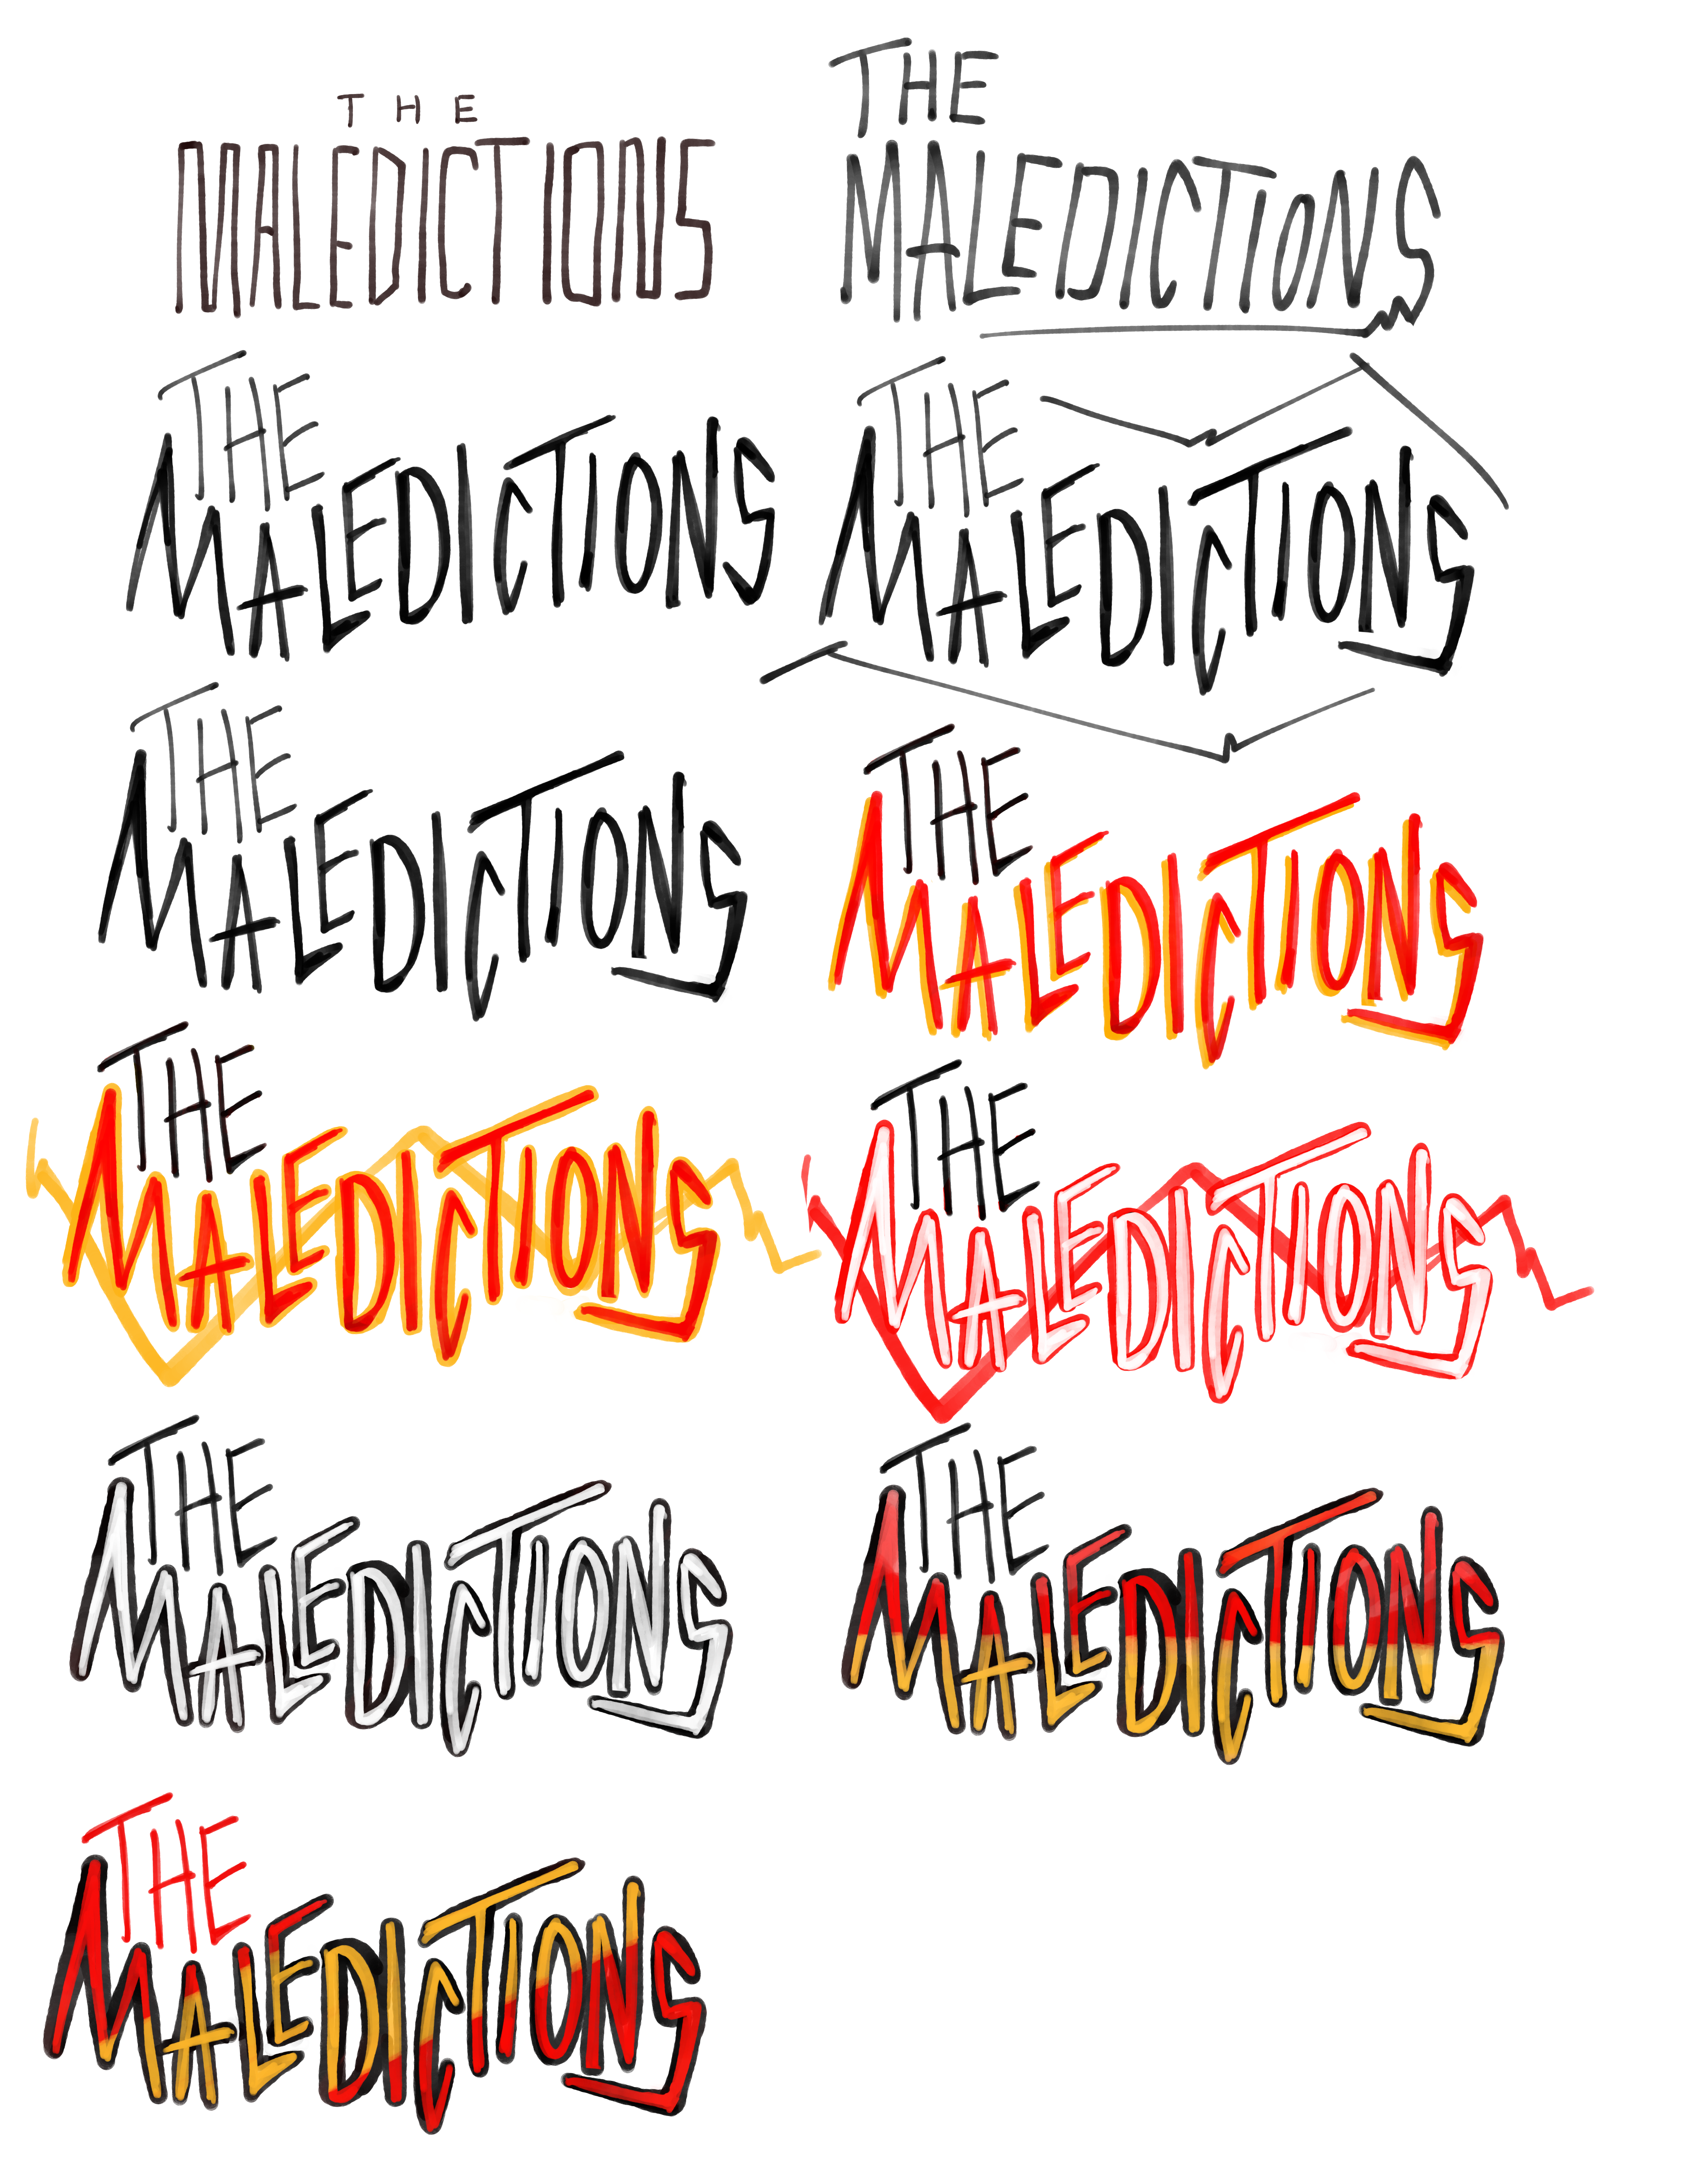 THE
MALEDICTIONS
THE
MALEDICTIONS
THE
MALEDICTIONS
THE
MALEDICTIONS
THE
MALEDICTIONS
THE
MALEDICTIONS
THE
MALEDICTIONS
THE
MALEDICTIONS
THE
MALEDICTIONS
THE
MALEDICTIONS
THE
MALEDICTIONS